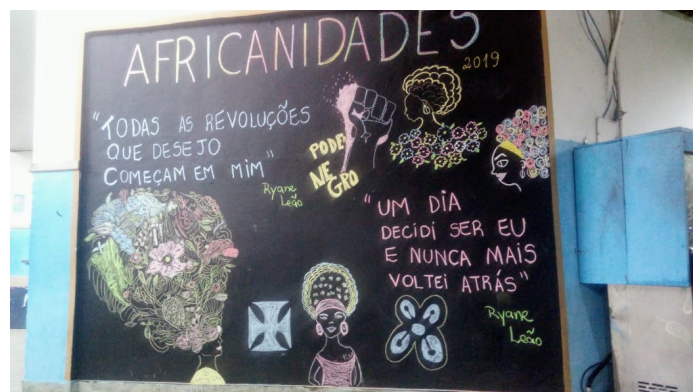 AFRICANIDADES
2019
"TODAS AS REVOLUÇÕES
QUE DESEJO
COMEÇAM EM MIM"
Ryane
Leão
PODER
NEGRO
"UM DIA
DECIDI SER EU
E NUNCA MAIS
VOLTEI ATRÁS"
Ryane
Leão